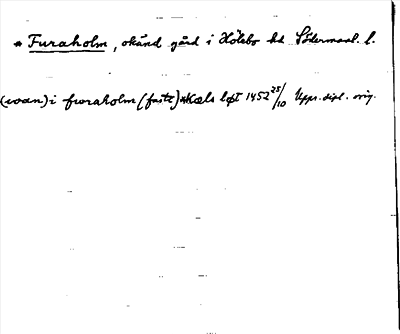 * Furaholm, okänd gård i Hölebo hd Södermanl. l.
(ivan) i furaholm (faste) *Kæls løt 1452 28/10 Upps. dipl. orig.